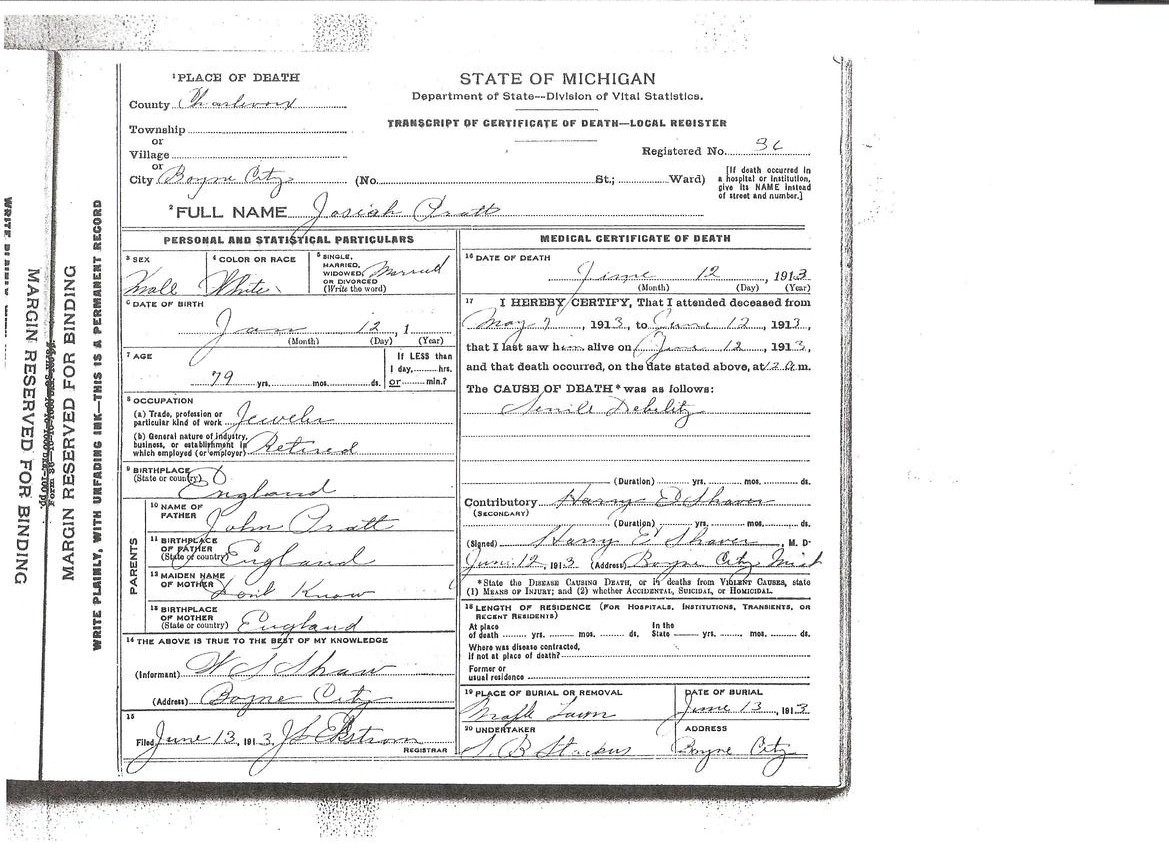 STATE OF MICHIGAN
Department of State—Division of Vital Statistics.
TRANSCRIPT OF CERTIFICATE OF DEATH—LOCAL REGISTER
1 PLACE OF DEATH
County Charlevoix
Township
or
Village
or
City Boyne City (No. St.; Ward)
Registered No. 36
[If death occurred in
a hospital or institution,
give its NAME instead
of street and number.]
2 FULL NAME Josiah Pratt
PERSONAL AND STATISTICAL PARTICULARS
3 SEX
Male
4 COLOR OR RACE
White
5 SINGLE,
MARRIED,
WIDOWED,
OR DIVORCED
(Write the word)
Married
6 DATE OF BIRTH
Jan 12, 1
(Month) (Day) (Year)
7 AGE
79 yrs. mos. ds.
If LESS than
1 day, hrs.
or min.?
8 OCCUPATION
(a) Trade, profession or
particular kind of work Jeweler
(b) General nature of industry,
business, or establishment in
which employed (or employer) Retired
9 BIRTHPLACE
(State or country)
England
PARENTS
10 NAME OF
FATHER
John Pratt
11 BIRTHPLACE
OF FATHER
(State or country) England
12 MAIDEN NAME
OF MOTHER
Dont Know
13 BIRTHPLACE
OF MOTHER
(State or country) England
14 THE ABOVE IS TRUE TO THE BEST OF MY KNOWLEDGE
(Informant) W S Shaw
(Address) Boyne City
15
Filed June 13, 1913 J S Ekstrom
REGISTRAR
MEDICAL CERTIFICATE OF DEATH
16 DATE OF DEATH
June 12, 1913
(Month) (Day) (Year)
17 I HEREBY CERTIFY, That I attended deceased from
May 7, 1913, to June 12, 1913,
that I last saw him alive on June 12, 1913,
and that death occurred, on the date stated above, at 12 a m.
The CAUSE OF DEATH* was as follows:
Senile Debility
(Duration) yrs. mos. ds.
Contributory Harry E Shaver
(SECONDARY)
(Duration) yrs. mos. ds.
(Signed) Harry E Shaver, M. D.
June 12, 1913 (Address) Boyne City Mich
*State the DISEASE CAUSING DEATH, or in deaths from VIOLENT CAUSES, state
(1) MEANS OF INJURY; and (2) whether ACCIDENTAL, SUICIDAL, OR HOMICIDAL.
18 LENGTH OF RESIDENCE (FOR HOSPITALS, INSTITUTIONS, TRANSIENTS, OR
RECENT RESIDENTS)
At place
of death yrs. mos. ds.
In the
State yrs. mos. ds.
Where was disease contracted,
if not at place of death?
Former or
usual residence
19 PLACE OF BURIAL OR REMOVAL
Maple Lawn
DATE OF BURIAL
June 13, 1913
20 UNDERTAKER
S. B. Stackus
ADDRESS
Boyne City
WRITE PLAINLY, WITH UNFADING INK—THIS IS A PERMANENT RECORD
MARGIN RESERVED FOR BINDING
MARGIN RESERVED FOR BINDING